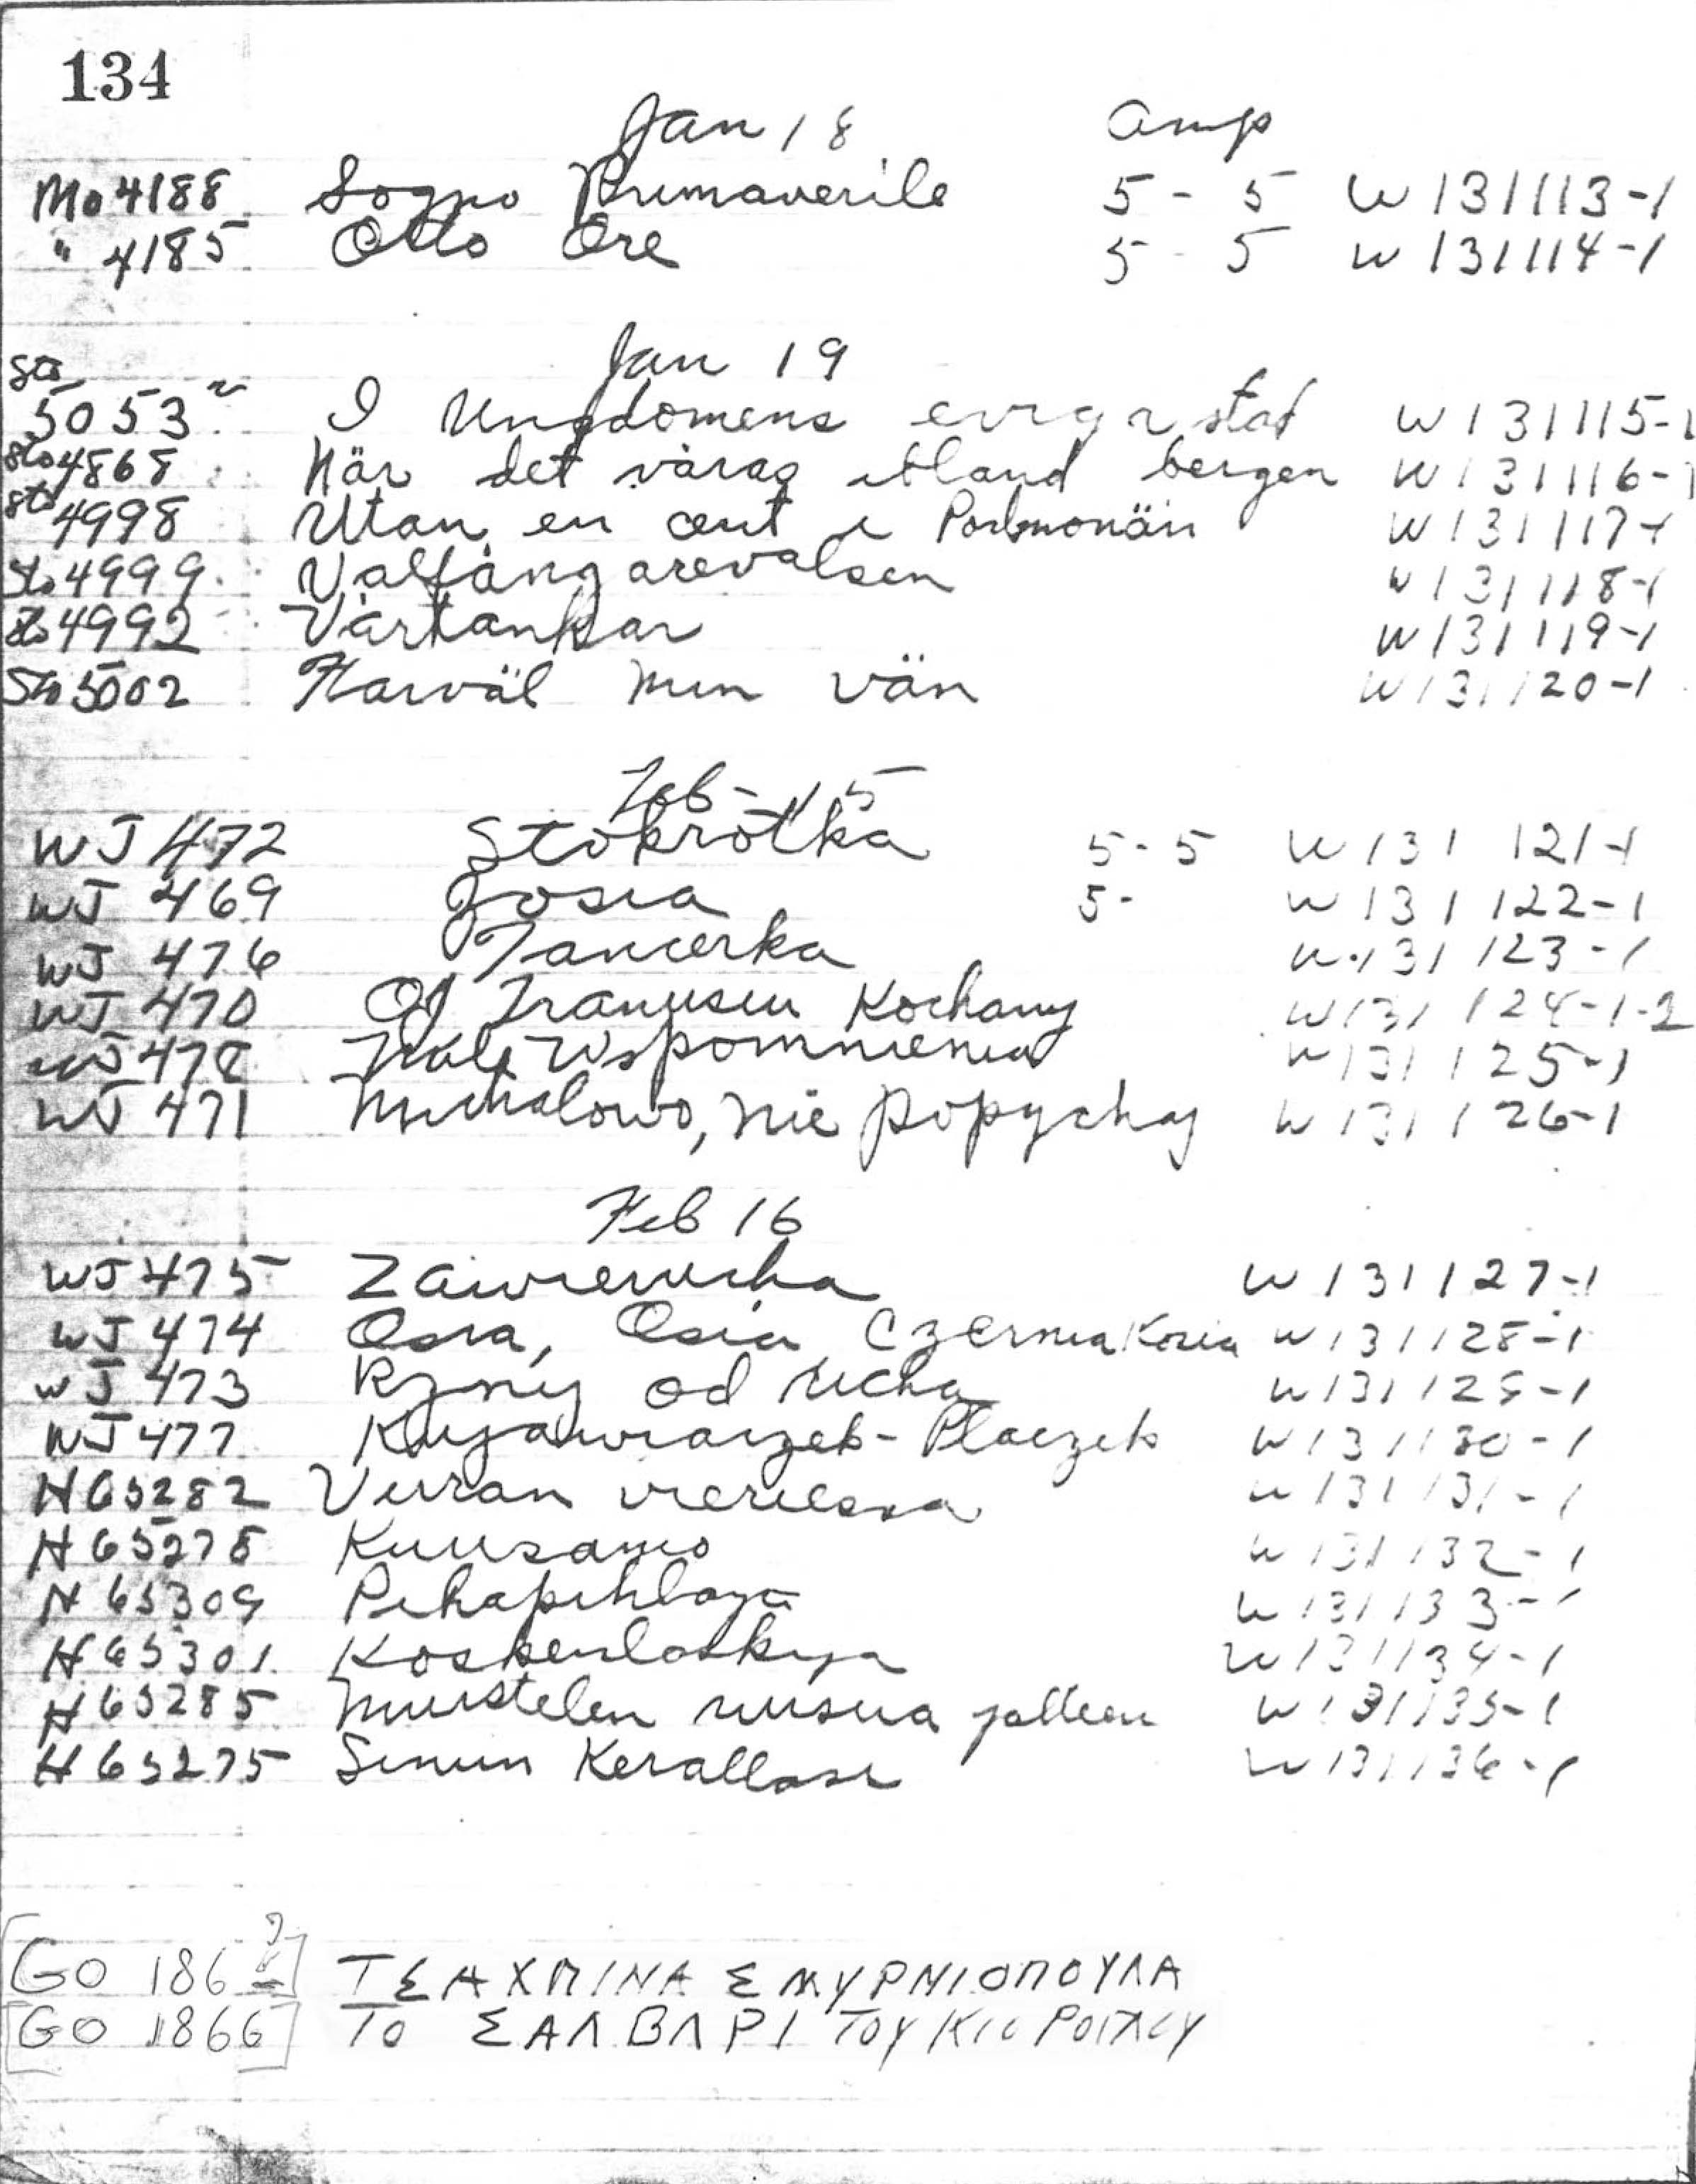 134
Jan 18 Amp
Mo 4188 Sogno Primaverile 5 - 5 W 131113-1
" 4185 Otto Ore 5 - 5 W 131114-1
Jan 19
Sto
5053 I Ungdomens eviga stad W 131115-1
Sto 4868 När det våras ibland bergen W 131116-1
Sto 4998 Utan en cent i Portmonän W 131117-1
Sto 4999 Valfångarevalsen W 131118-1
Sto 4992 Vårtankar W 131119-1
Sto 5002 Farväl min vän W 131120-1
Feb - 15
WJ 472 Stokrotka 5-5 W 131 121-1
WJ 469 Zosia 5- W 131 122-1
WJ 476 Tancerka W 131 123-1
WJ 470 Oj Franusiu Kochany W 131 124-1-2
WJ 478 Wspomnienia W 131 125-1
WJ 471 Michalowo, nie popychaj W 131 126-1
Feb 16
WJ 475 Zawierucha W 131127-1
WJ 474 Osia, Osia Czerna Kozia W 131128-1
WJ 473 Rznij od ucha W 131129-1
WJ 477 Kujawiaczek - Placzek W 131130-1
H 65282 Virran vierilessa W 131131-1
H 65278 Kuusamo W 131132-1
H 65309 Pihapihlaja W 131133-1
H 65301 Koskenlaskija W 131134-1
H 65285 Muistelen sinua jalleen W 131135-1
H 65275 Sinun Kerallasi W 131136-1
[GO 186 ?] ΤΣΑΧΠΙΝΑ ΣΜΥΡΝΙΟΠΟΥΛΑ
[GO 1866] ΤΟ ΣΑΛΒΑΡΙ ΤΟΥ